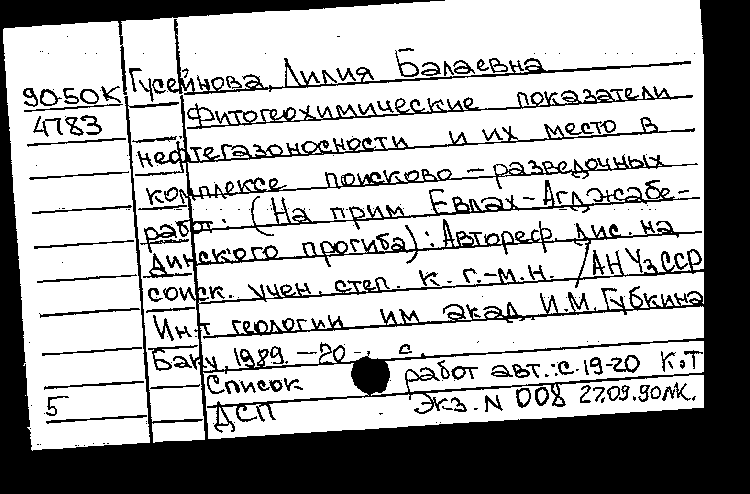 90-50К Гусейнова, Лилия Балаевна
4783 Фитогеохимические показатели
нефтегазоносности и их место в
комплексе поисково-разведочных
работ: (На прим Евлах-Агджабе-
динского прогиба): Автореф. дис. на
соиск. учен. степ. к. г.-м.н. /АН УзССР
Ин-т геологии им акад. И.М. Губкина
Баку, 1989. -20 с.
Список работ авт.: с. 19-20 К.Т
5 ДСП Экз. N 008 27.09.90 МК.